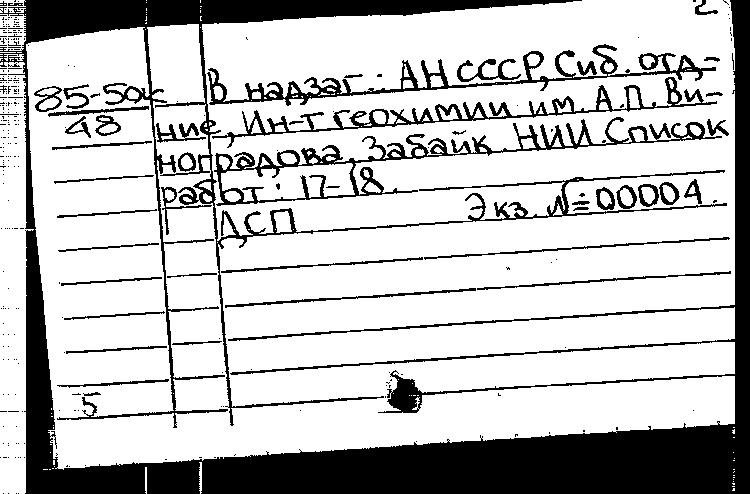 2
85-5ок В надзаг.: АН СССР, Сиб. отд=
48 ние, Ин-т геохимии им. А.П. Ви=
ноградова, Забайк. НИИ. Список
работ: 17-18.
ДСП Экз. №00004.
5